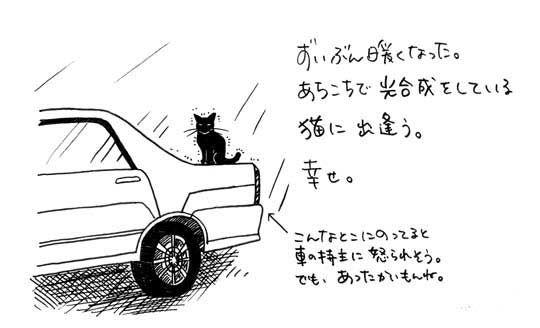 ずいぶん暖くなった。
あちこちで光合成をしている
猫に出逢う。
幸せ。
こんなとこにのってると
車の持主に怒られそう。
でも、あったかいもんね。